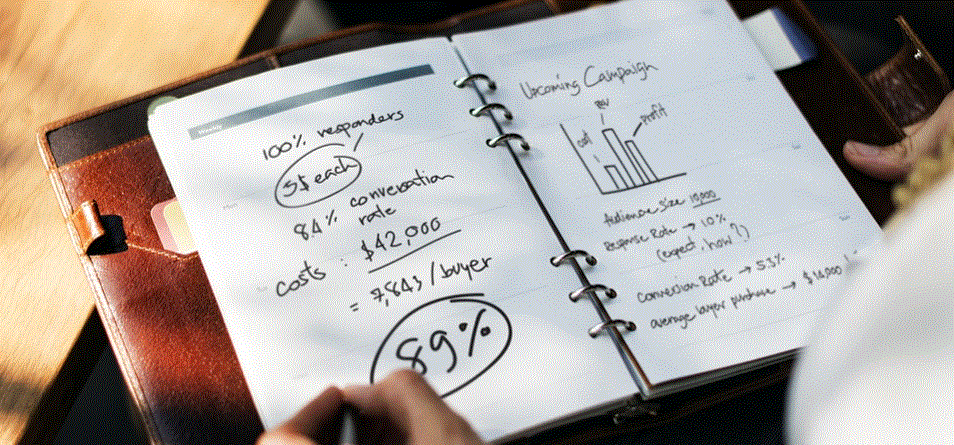 Weekly
100% responders
5$ each
84% conversation
rate
costs : $42,000
= 7,843/buyer
89%
Upcoming Campaign
cost
Rev
Profit
Audience size 10,000
Response Rate → 10%
(expect, how?)
Conversion Rate → 5.3%
average buyer purchase → $10,000